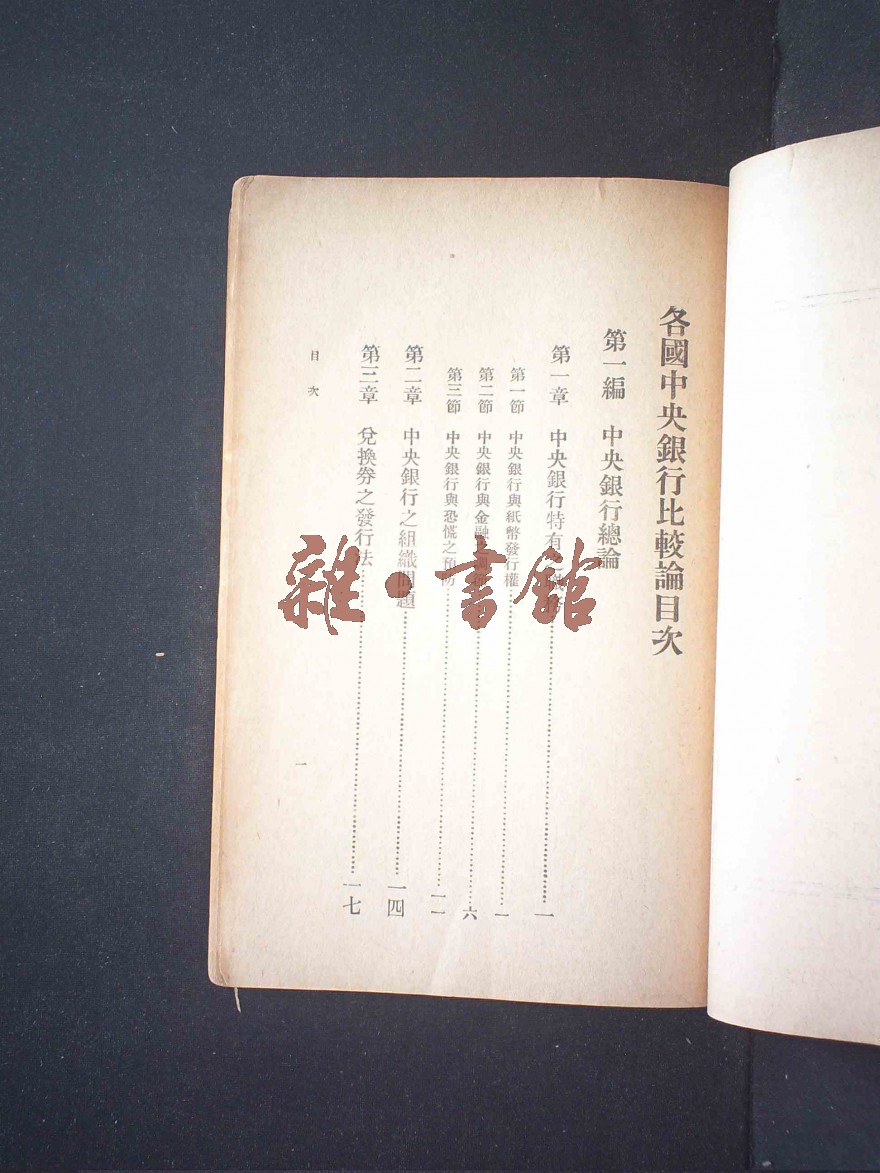 各國中央銀行比較論目次
第一編 中央銀行總論
第一章 中央銀行特有之職務 一
第一節 中央銀行與紙幣發行權 一
第二節 中央銀行與金融之調節 六
第三節 中央銀行與恐慌之預防 一一
第二章 中央銀行之組織問題 一四
第三章 兌換券之發行法 一七
目次
一
雜·書館